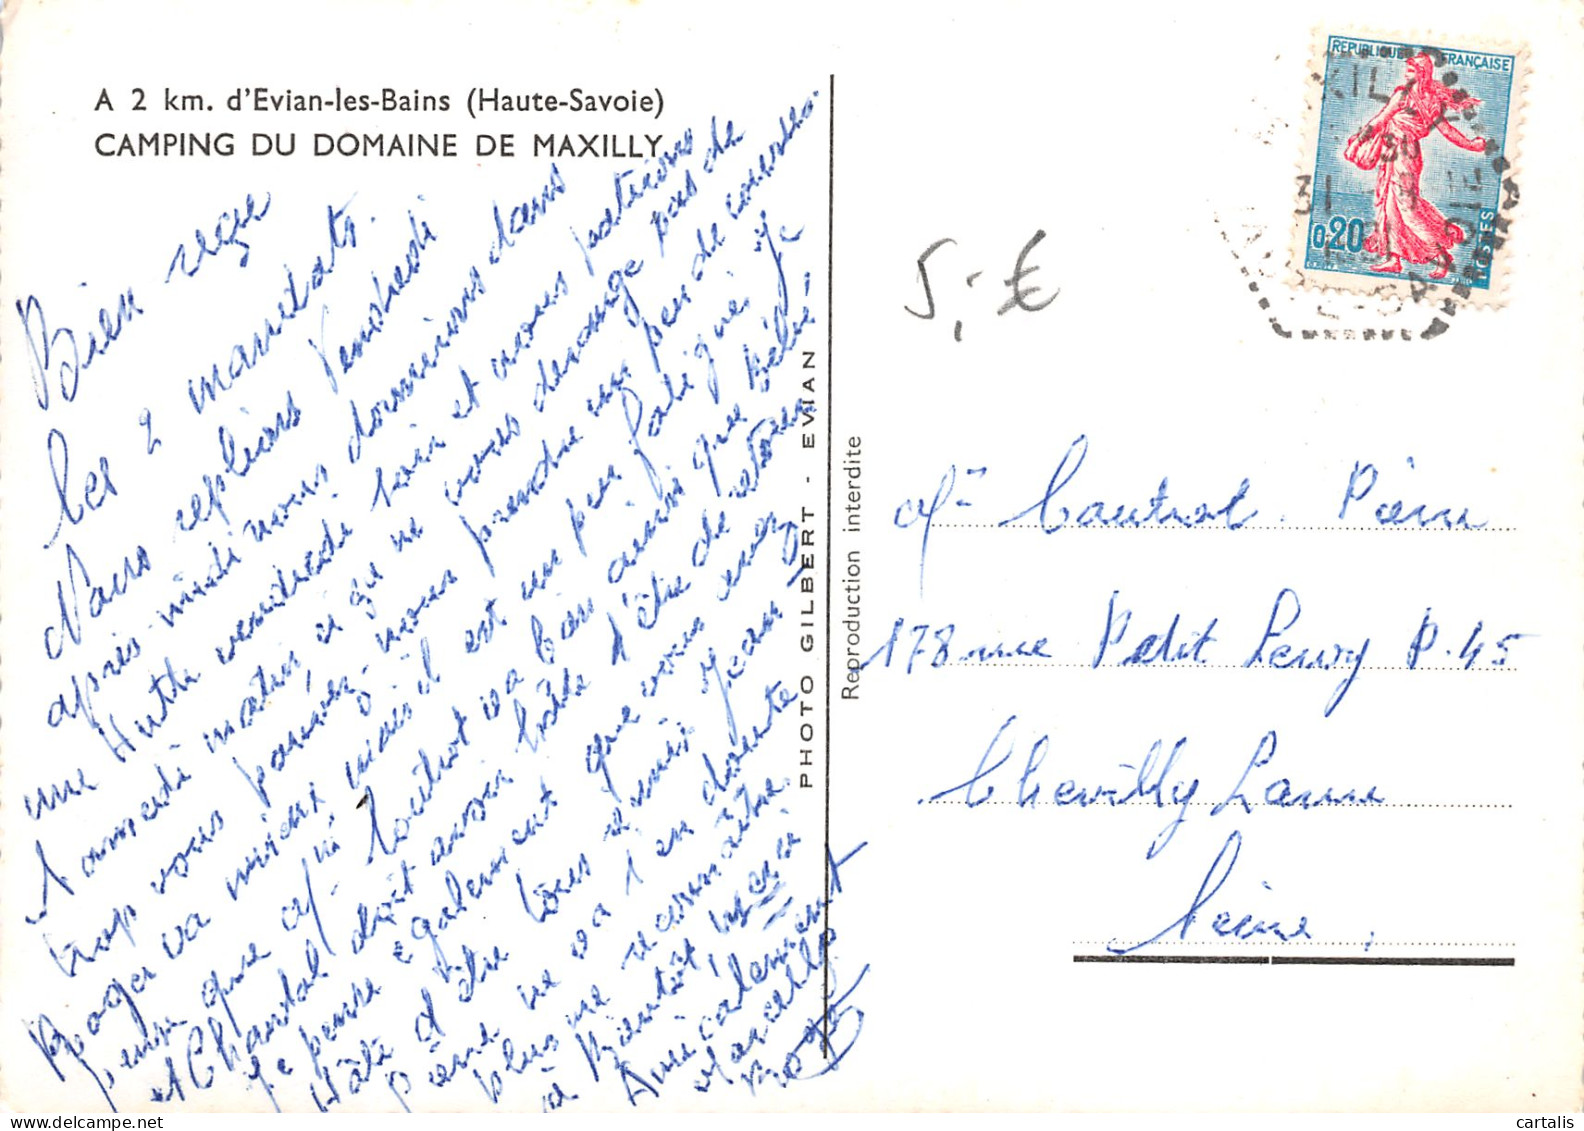 A 2 km. d'Evian-les-Bains (Haute-Savoie)
CAMPING DU DOMAINE DE MAXILLY
Bien reçu
les 2 mandats.
Nous replions Vendredi
après-midi nous dormirons dans
une Hutte vendredi soir et nous partirons
samedi matin, si ça ne vous dérange pas de
trop vous pouvez-nous prendre un peu de
Roger va mieux mais il est un peu fatigué, je
pense que Mr Coutrot va bien ainsi que
et Chantal doit avoir hâte d'être de retour
Je pense également que vous avez
hâte d'être tous réunis Jean
va t'en doute
plus me reconnaître.
à Bientôt, merci
Amicalement
Marcelle
Roger
PHOTO GILBERT - EVIAN
Reproduction interdite
5,- €
REPUBLIQUE FRANÇAISE
0,20
POSTES
31
Mr Coutrot Pierre
178 rue Petit Leroy P. 45
Chevilly Larue
Seine,
cartalis